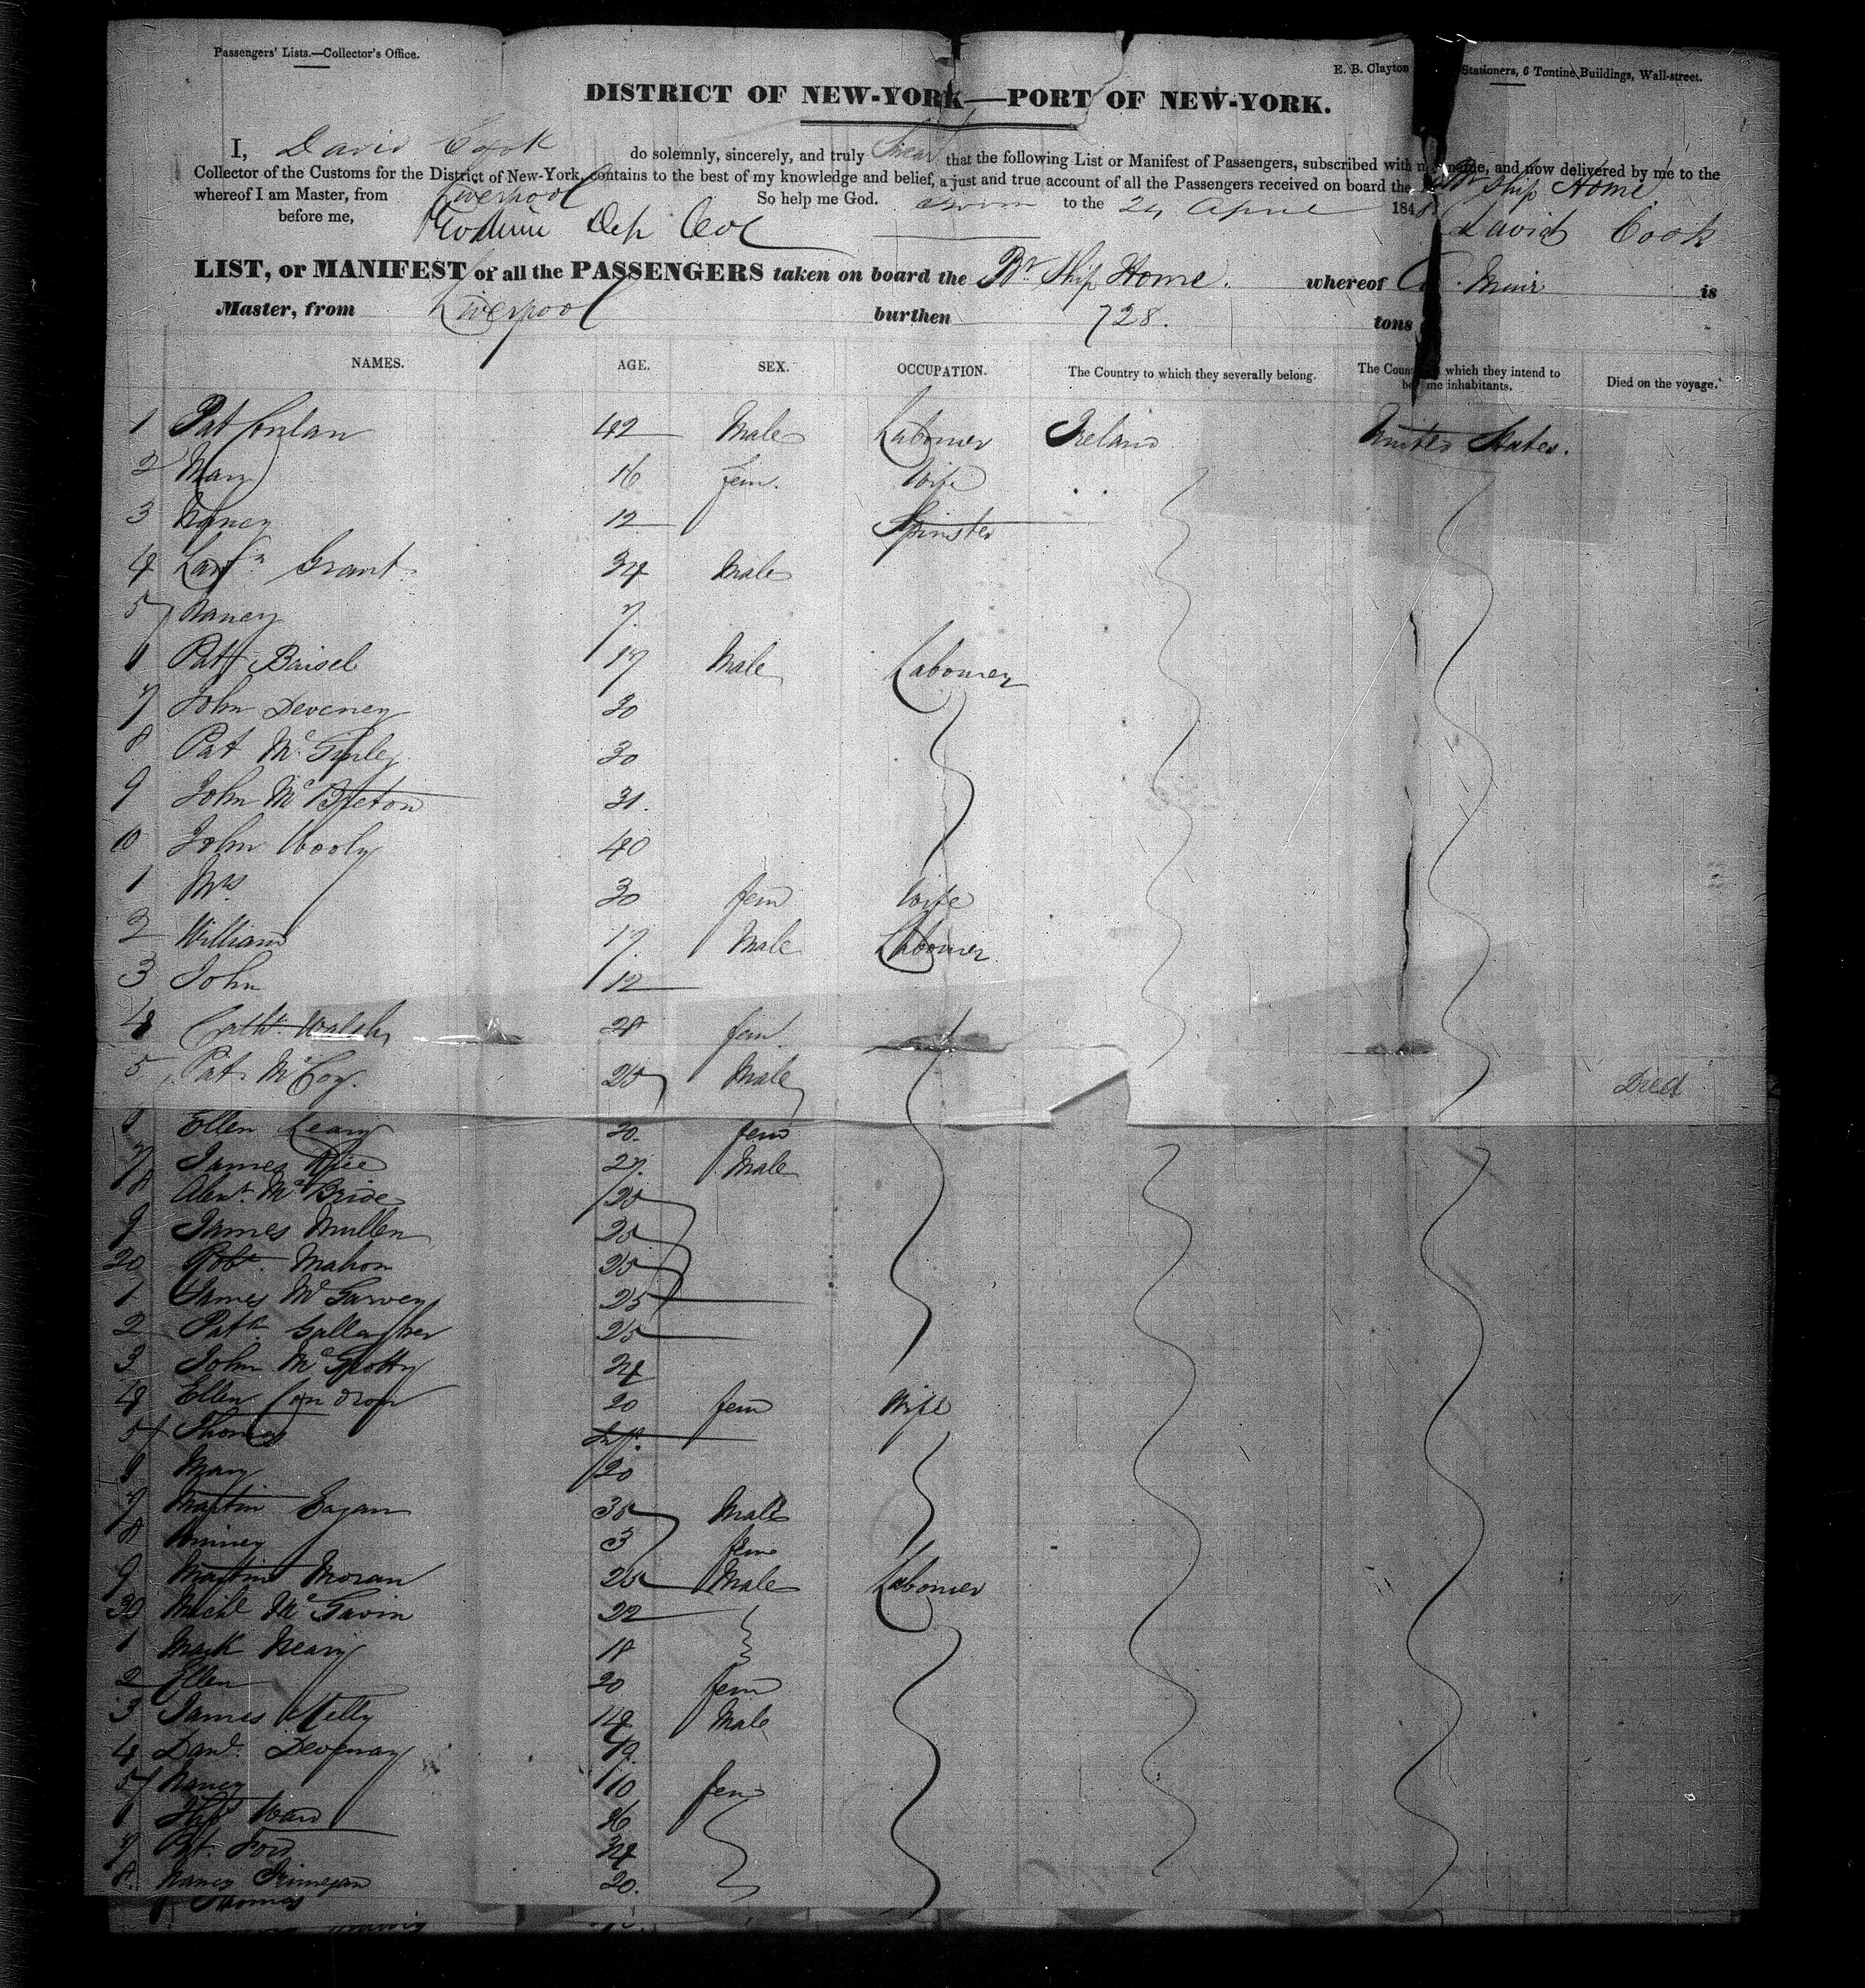 Passengers' Lists.—Collector's Office.
E. B. Clayton Stationers, 6 Tontine Buildings, Wall-street.
DISTRICT OF NEW-YORK—PORT OF NEW-YORK.
I, David Cook do solemnly, sincerely, and truly Swear that the following List or Manifest of Passengers, subscribed with my name, and now delivered by me to the
Collector of the Customs for the District of New-York, contains to the best of my knowledge and belief, a just and true account of all the Passengers received on board the Br Ship Home
whereof I am Master, from Liverpool So help me God. Sworn to the 24 April 1848
before me, Dep Col David Cook
LIST, or MANIFEST of all the PASSENGERS taken on board the Br Ship Home. whereof Muir is
Master, from Liverpool burthen 728. tons
NAMES. AGE. SEX. OCCUPATION. The Country to which they severally belong. The Country of which they intend to become inhabitants. Died on the voyage.
1 Pat Conlan 42 Male Labourer Ireland United States.
2 Mary 16 fem. Wife
3 Nancy 12 Spinster
4 Grant 34 Male
5 Nancy 7.
Pat 17 Male Labourer
7 John Deveney 30
8 Pat McGinley 30
9 John 31.
10 John 40
1 Mrs 30 fem Wife
2 William 17 Male Labourer
3 John 12
4 Cathe Walsh 28 fem.
5 Pat McCoy. 25 Male Died
6 Ellen Leary 20. fem
7 James Rice 27. Male
8 Alexr. McBride 25
9 James Mullen 25
20 Robt. Mahon 25
1 James McGarvey 25
2 Patk Gallagher 25
3 John McGrotty 24
4 Ellen Condron 20 fem Wife
5 Thomas Inft.
6 Mary 20
7 Martin Eagan 35 Male
8 Winney 3 fem
9 Martin Moran 25 Male Labourer
30 Michl McGavin 22
1 Mark Neary 18
2 Ellen 20 fem
3 James Kelly 19 Male
4 Danl. Devenay
5 Nancy 10 fem
6 Ward 26
7 Pat Ford 34
8 Nancy Finnegan 20.
9 Thomas